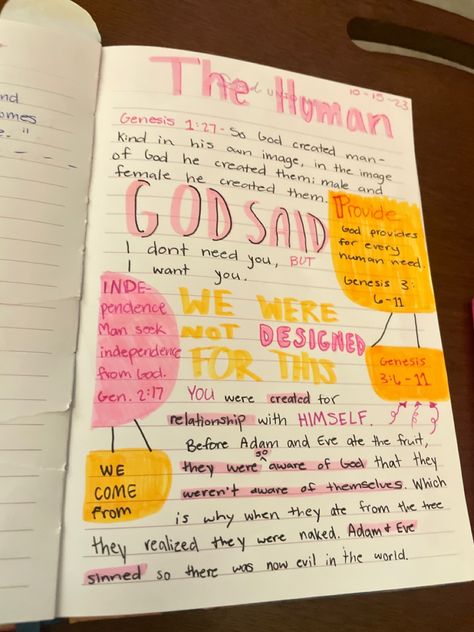 nd
omes
e."
The Human
10-15-23
Genesis 1:27- So God created man-
kind in his own image, in the image
of God he created them; male and
female he created them.
GOD SAID
I dont need you, BUT
I want you.
Provide
God provides
for every
human need.
Genesis 3:
6-11
INDE-
pendence
Man seek
independence
from God.
Gen. 2:17
WE WERE
NOT DESIGNED
FOR THIS
Genesis
3:6-11
YOU were created for
relationship with HIMSELF.
Before Adam and Eve ate the fruit,
they were so aware of God that they
weren't aware of themselves. Which
is why when they ate from the tree
they realized they were naked. Adam & Eve
sinned so there was now evil in the world.
WE
COME
from